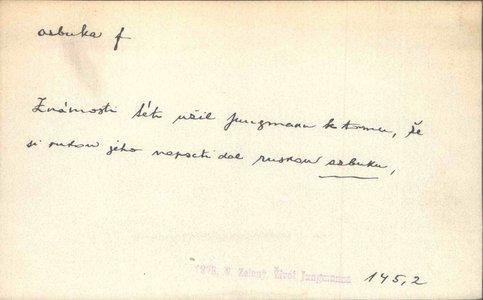 azbuka f
Známosti této užil Jungmann k tomu, že
si rukou jeho napsati dal ruskou azbuku,
1873, V. Zelený, Život Jungmanna 145,2